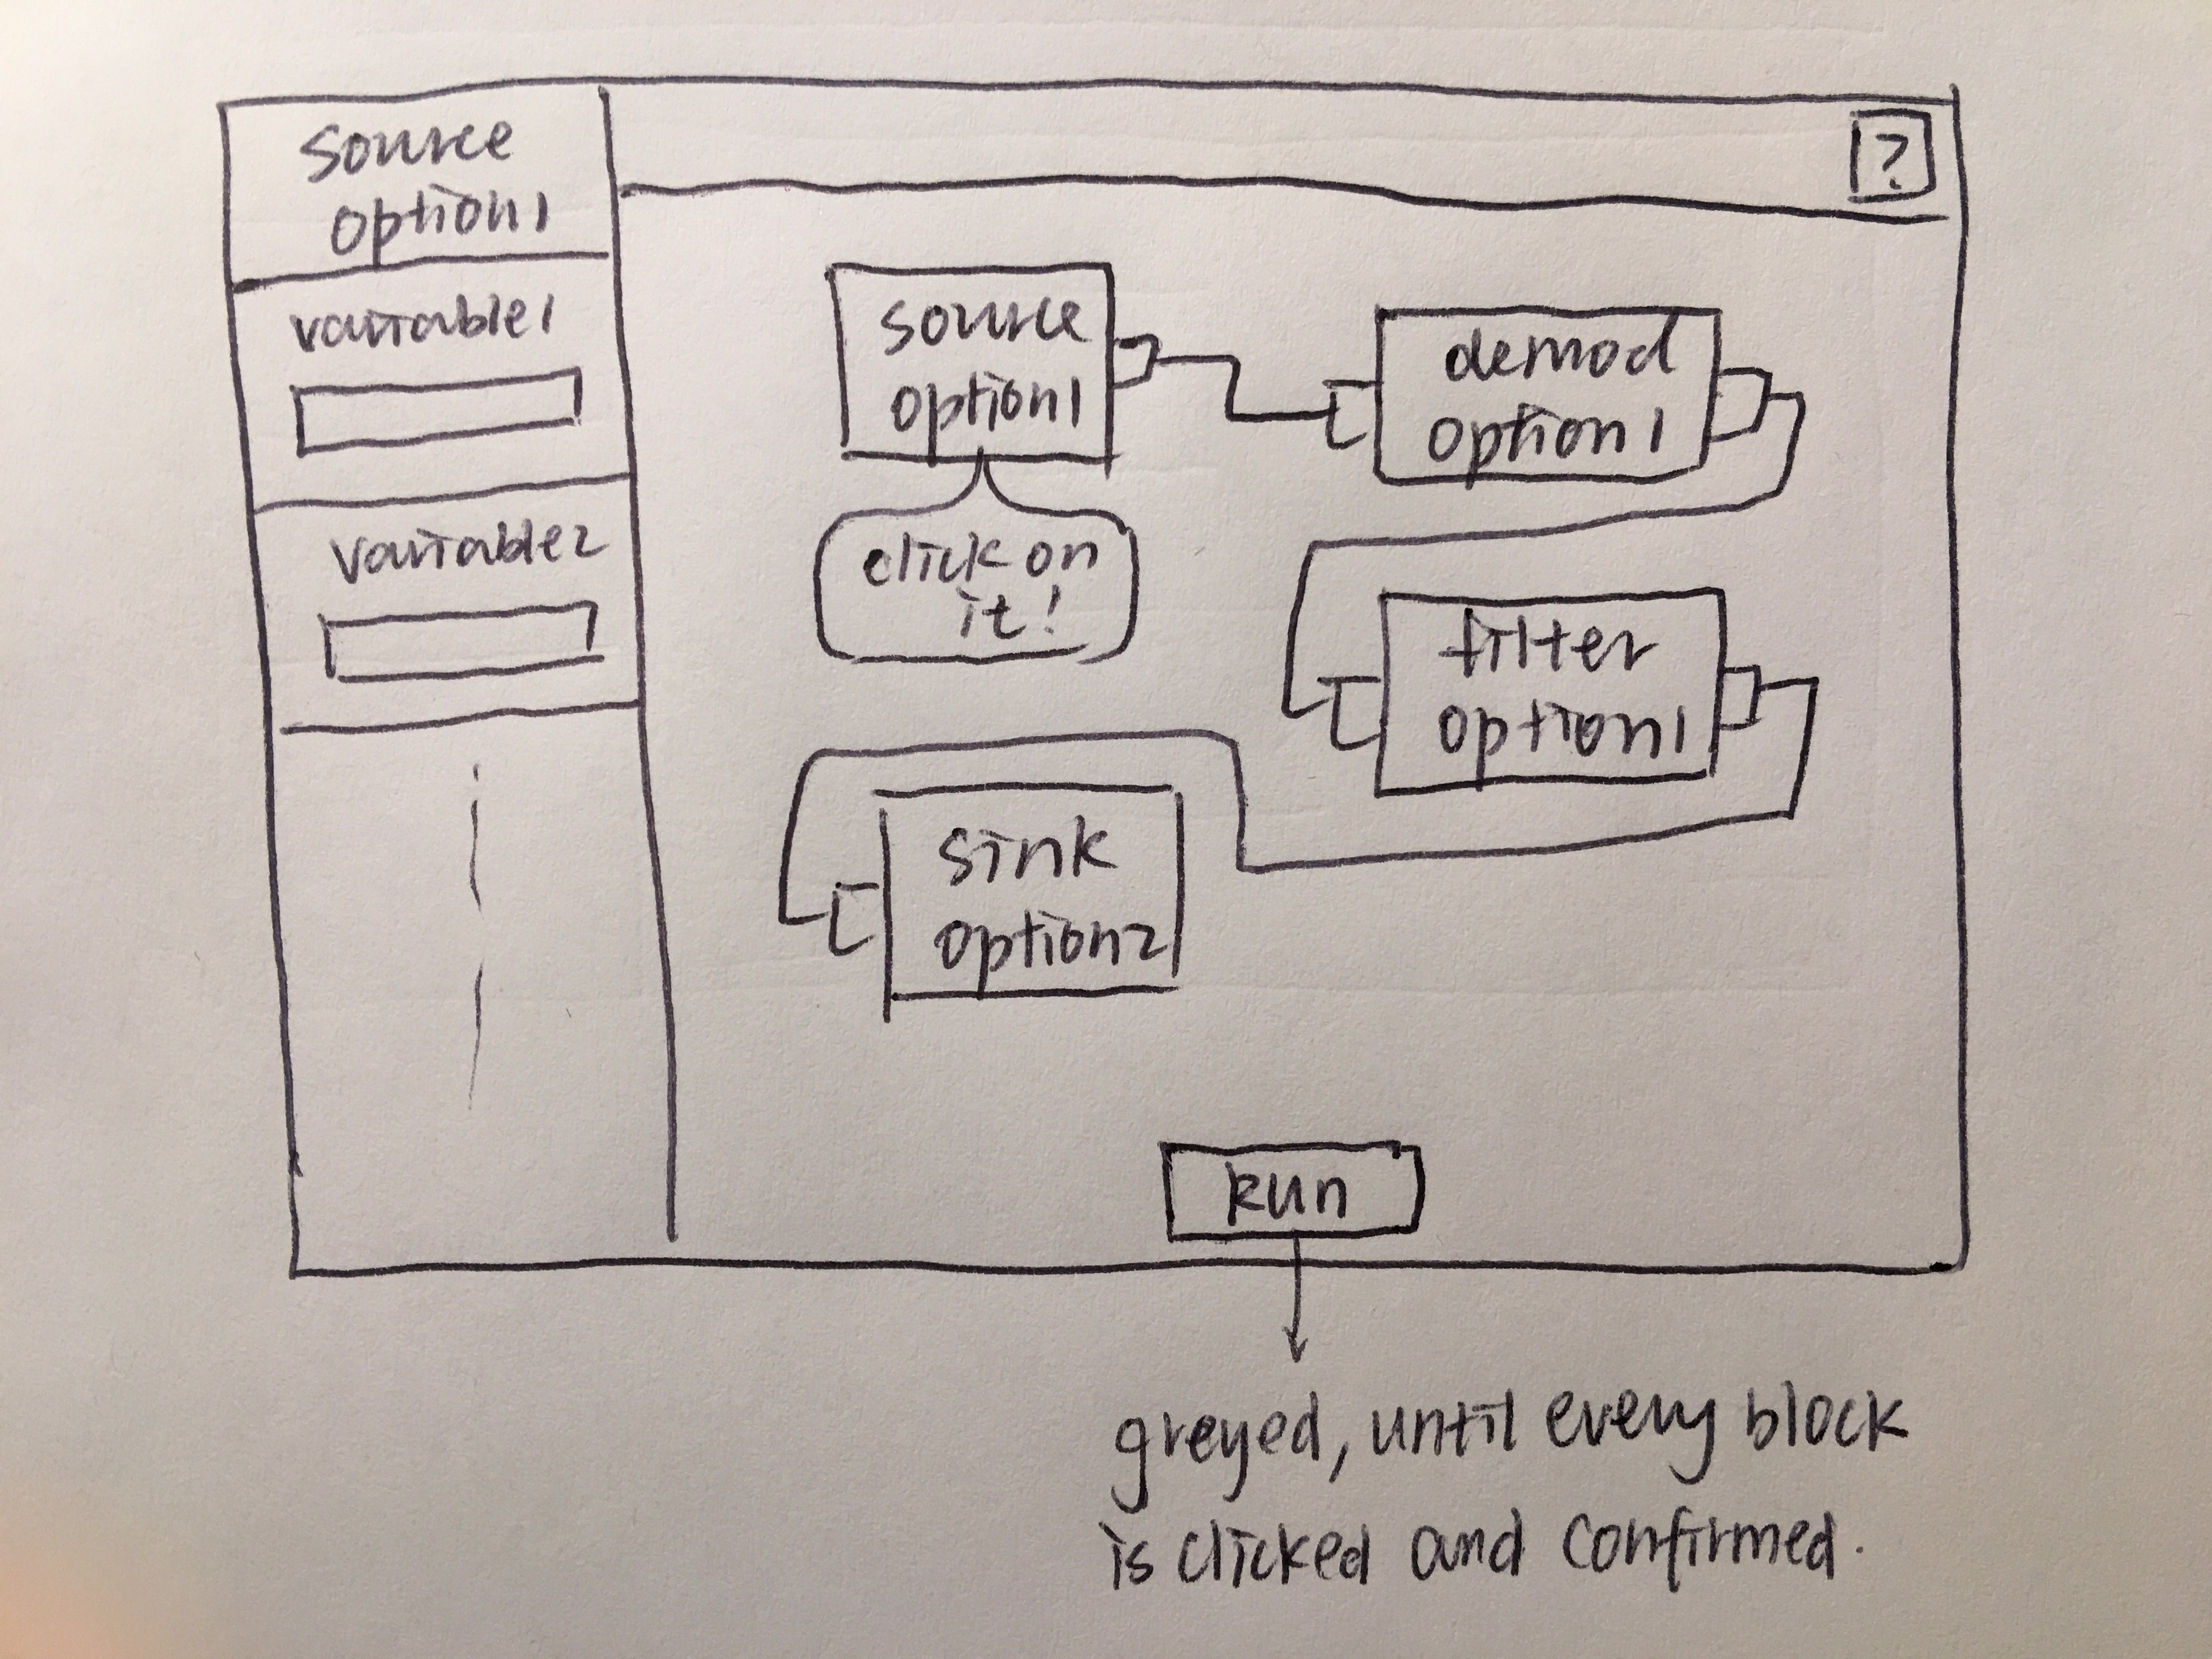 source
option1
variable1
variable2
?
source
option1
click on
it!
demod
option1
filter
option1
sink
option2
Run
greyed, until every block
is clicked and confirmed.